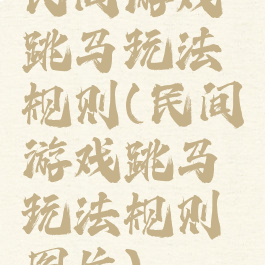 民间游戏
跳马玩法
规则(民间
游戏跳马
玩法规则
图片)